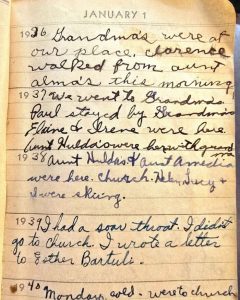 JANUARY 1
1936 Grandma's were at
our place. Clarence
walked from aunt
alma's this morning
1937 We went to Grandma's
Paul stayed by Grandma's
Elaine & Irene were here
aunt Hulda's were here with grandma
1938 Aunt Huldas & Aunt Amelia
were here. Church. Helen, Lucy &
I were skiing.
1939 I had a soar throat. I didn't
go to church. I wrote a letter
to Esther Bartuli.
1940 Monday, cold. were to church